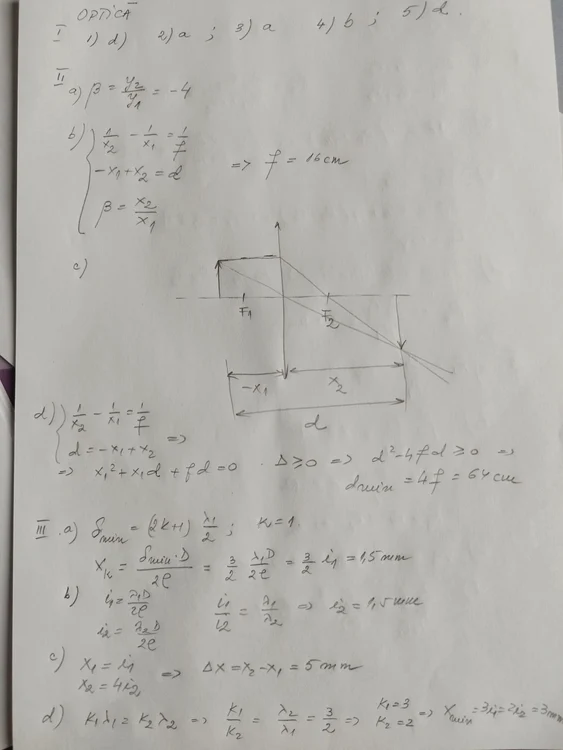 OPTICĂ
I 1) d) 2) a ; 3) a 4) b ; 5) d.
II a) β = y₂/y₁ = -4
b) { 1/x₂ - 1/x₁ = 1/f
-x₁ + x₂ = d => f = 16 cm
β = x₂/x₁
c)
F₁ F₂
-x₁ x₂
d
d) { 1/x₂ - 1/x₁ = 1/f
d = -x₁ + x₂ =>
=> x₁² + x₁d + fd = 0 . Δ ≥ 0 => d² - 4fd ≥ 0 =>
dmin = 4f = 64 cm
III .a) δmin = (2k+1) λ₁/2 ; k = 1.
xk = δmin·D/2ℓ = 3/2 λ₁D/2ℓ = 3/2 i₁ = 1,5 mm
b) i₁ = λ₁D/2ℓ i₁/i₂ = λ₁/λ₂ => i₂ = 1,5 mm
i₂ = λ₂D/2ℓ
c) x₁ = i₁
x₂ = 4i₂ => Δx = x₂ - x₁ = 5 mm
d) k₁λ₁ = k₂λ₂ => k₁/k₂ = λ₂/λ₁ = 3/2 => k₁ = 3 k₂ = 2 => xmin = 3i₁ = 2i₂ = 3 mm